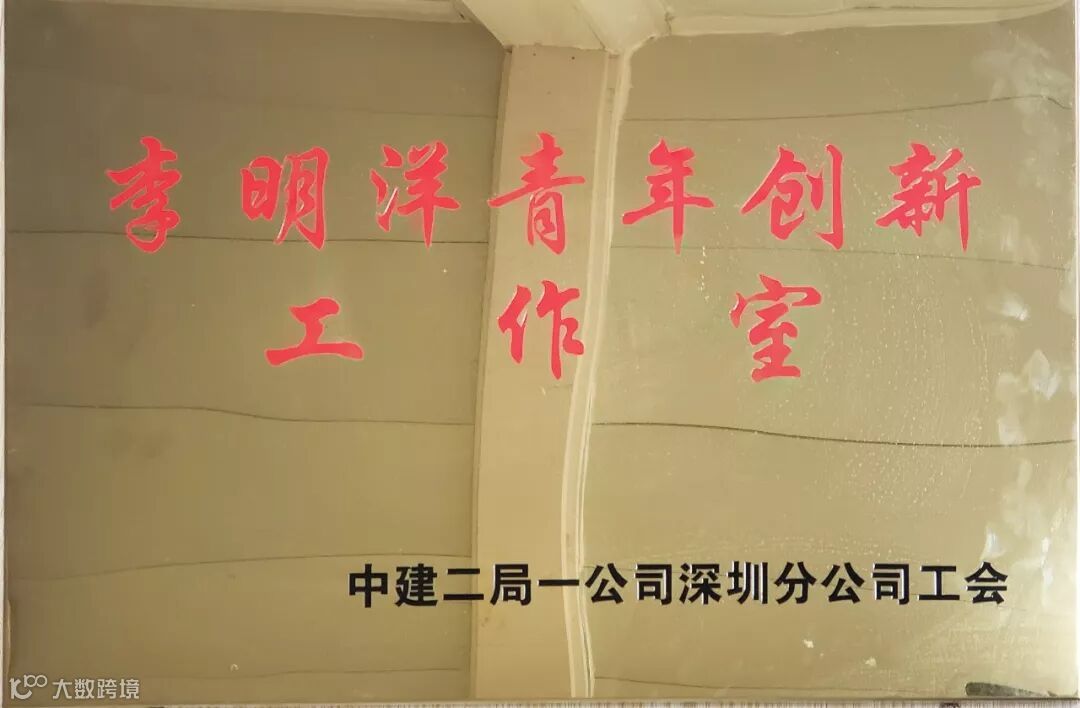 李明洋青年创新
工作室
中建二局一公司深圳分公司工会
大数跨境